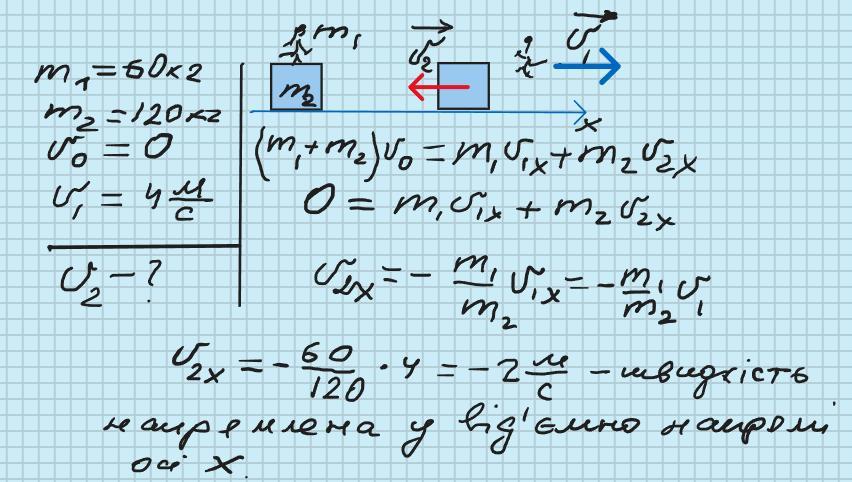 m₁ = 60кг
m₂ = 120кг
v₀ = 0
v₁ = 4 м/с
v₂ - ?
m₁
m₂
v₂
v₁
x
(m₁ + m₂)v₀ = m₁v₁ₓ + m₂v₂ₓ
0 = m₁v₁ₓ + m₂v₂ₓ
v₂ₓ = - m₁/m₂ v₁ₓ = - m₁/m₂ v₁
v₂ₓ = - 60/120 · 4 = - 2 м/с - швидкість
напрямлена у від'ємно напрямі
осі X.